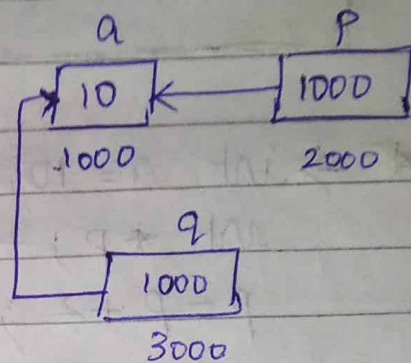 a p
10 1000
1000 2000
q
1000
3000